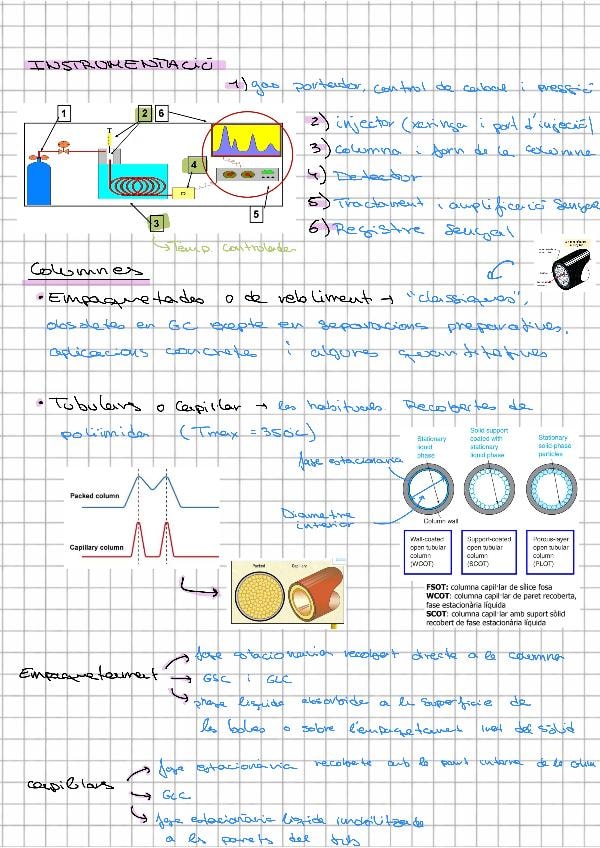 INSTRUMENTACIÓ
1) gas portador, control de cabal i pressió
2) injector (xeringa i port d'injecció)
3) columna i forn de la columna
4) Detector
5) Tractament i amplificació senyal
6) Registre senyal
1
2
6
T
4
D
3
5
temp controlada
Columnes
• Empaquetades o de rebliment → "clàssiques",
obsoletes en GC excepte en separacions preparatives,
aplicacions concretes i algunes quantitatives
• Tubulars o capil·lar → les habituals. Recobertes de
poliimida (Tmax = 350ºC)
fase estacionaria
Diametre
interior
Stationary
liquid
phase
Solid support
coated with
stationary
liquid phase
Stationary
solid-phase
particles
Column wall
Wall-coated
open tubular
column
(WCOT)
Support-coated
open tubular
column
(SCOT)
Porous-layer
open tubular
column
(PLOT)
FSOT: columna capil·lar de sílice fosa
WCOT: columna capil·lar de paret recoberta,
fase estacionària líquida
SCOT: columna capil·lar amb suport sòlid
recobert de fase estacionària líquida
Packed column
Capillary column
Packed
Capillary
Empaquetament
→ fase estacionaria recobert directe a la columna
→ GSC i GLC
→ phase liquida absorbida a la superficie de
les boles o sobre l'empaquetament inert del sòlid
capil·lars
→ fase estacionària recoberta amb la paret interna de la colum
→ GLC
→ fase estacionària liquida immobilitzada
a les parets del tub